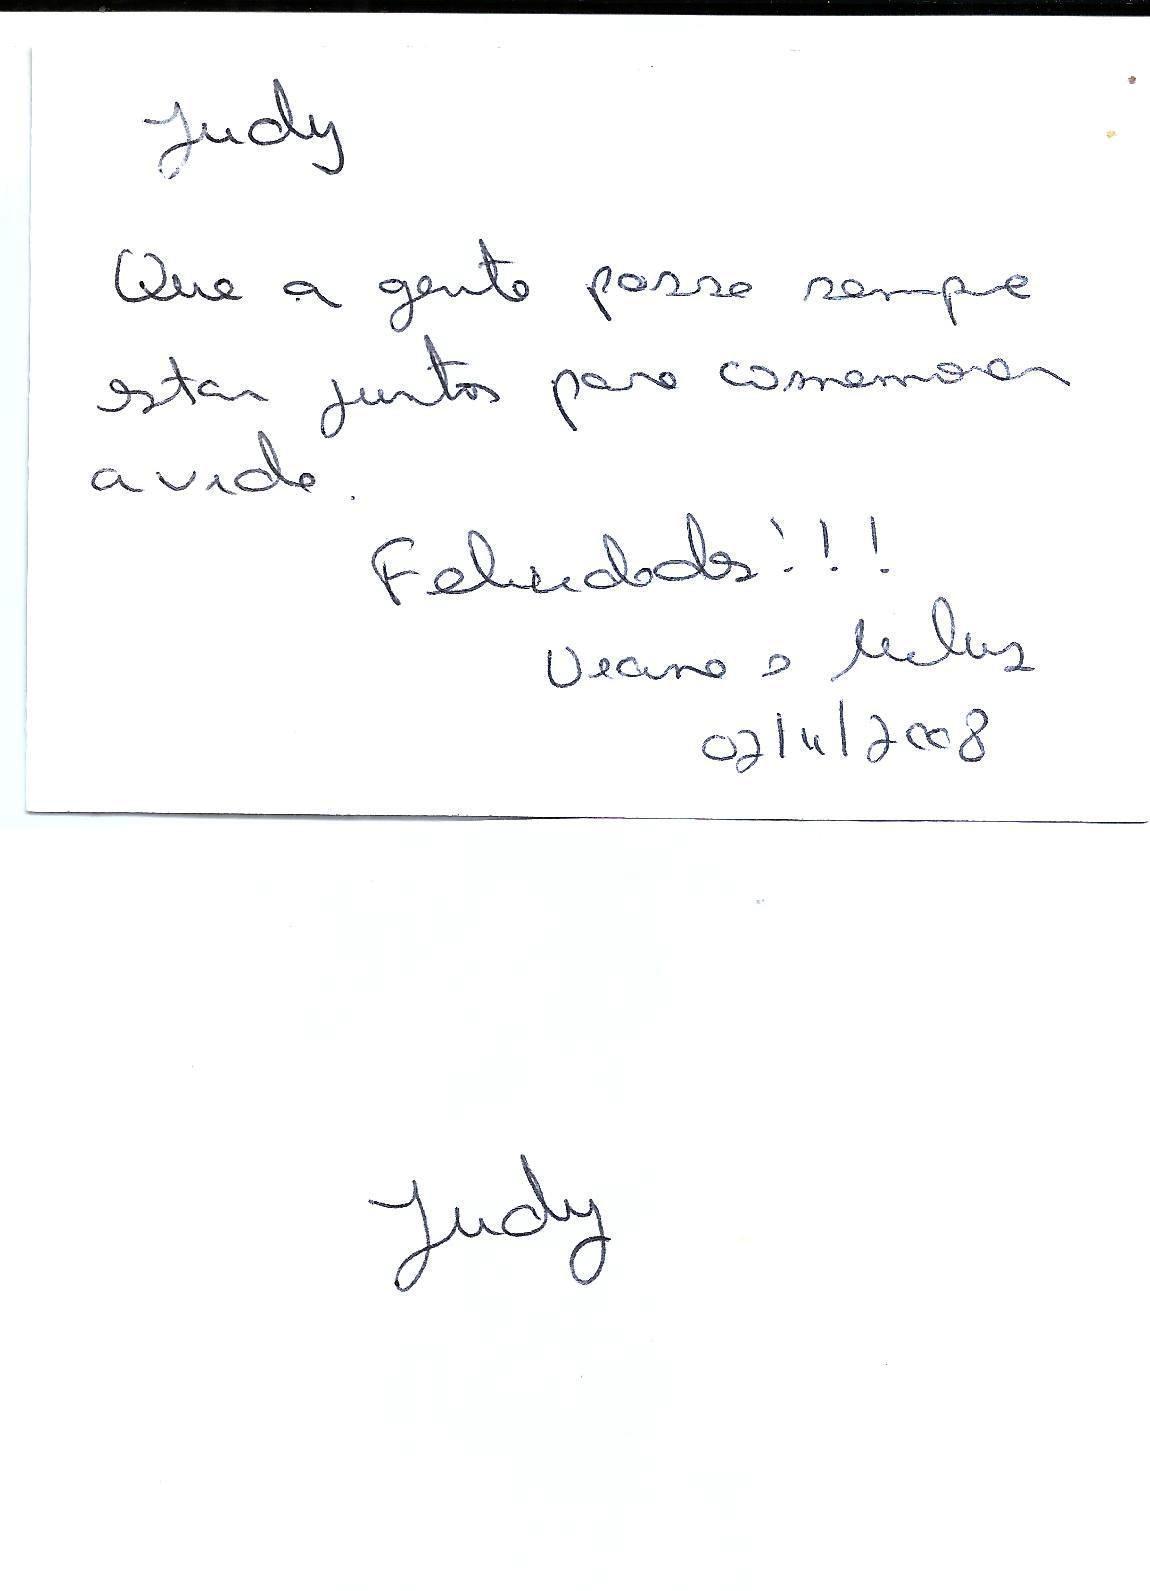 Judy
Que a gente possa sempre
estar juntos para comemorar
a vida.
Felicidades!!!
e
02/11/2008
Judy